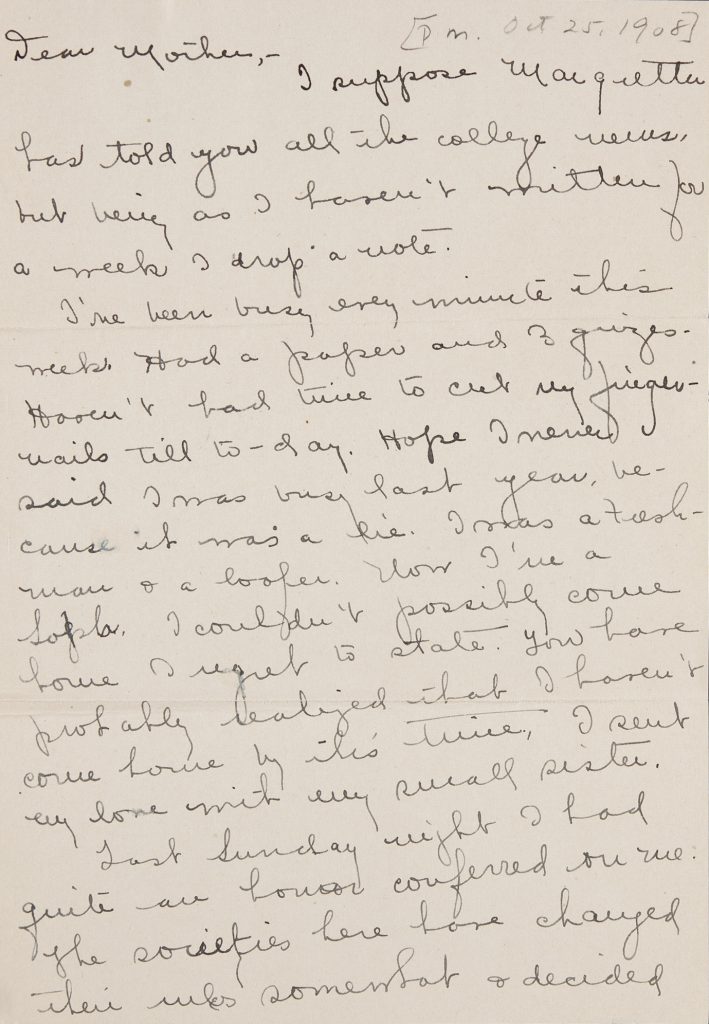 [P m. Oct 25, 1908]
Dear Mother,-
I suppose Margretta
has told you all the college news,
but being as I haven't written for
a week I drop a note.
I've been busy every minute this
week. Had a paper and 3 quizes.
Haven't had time to cut my finger-
nails till to-day. Hope I never
said I was busy last year, be-
cause it was a lie. I was a Fresh-
man & a loafer. Now I'm a
Soph. I couldn't possibly come
home I regret to state. You have
probably realized that I haven't
come home by this time, I sent
my love with my small sister.
Last Sunday night I had
quite an honor conferred on me.
The societies here have changed
their rules somewhat & decided